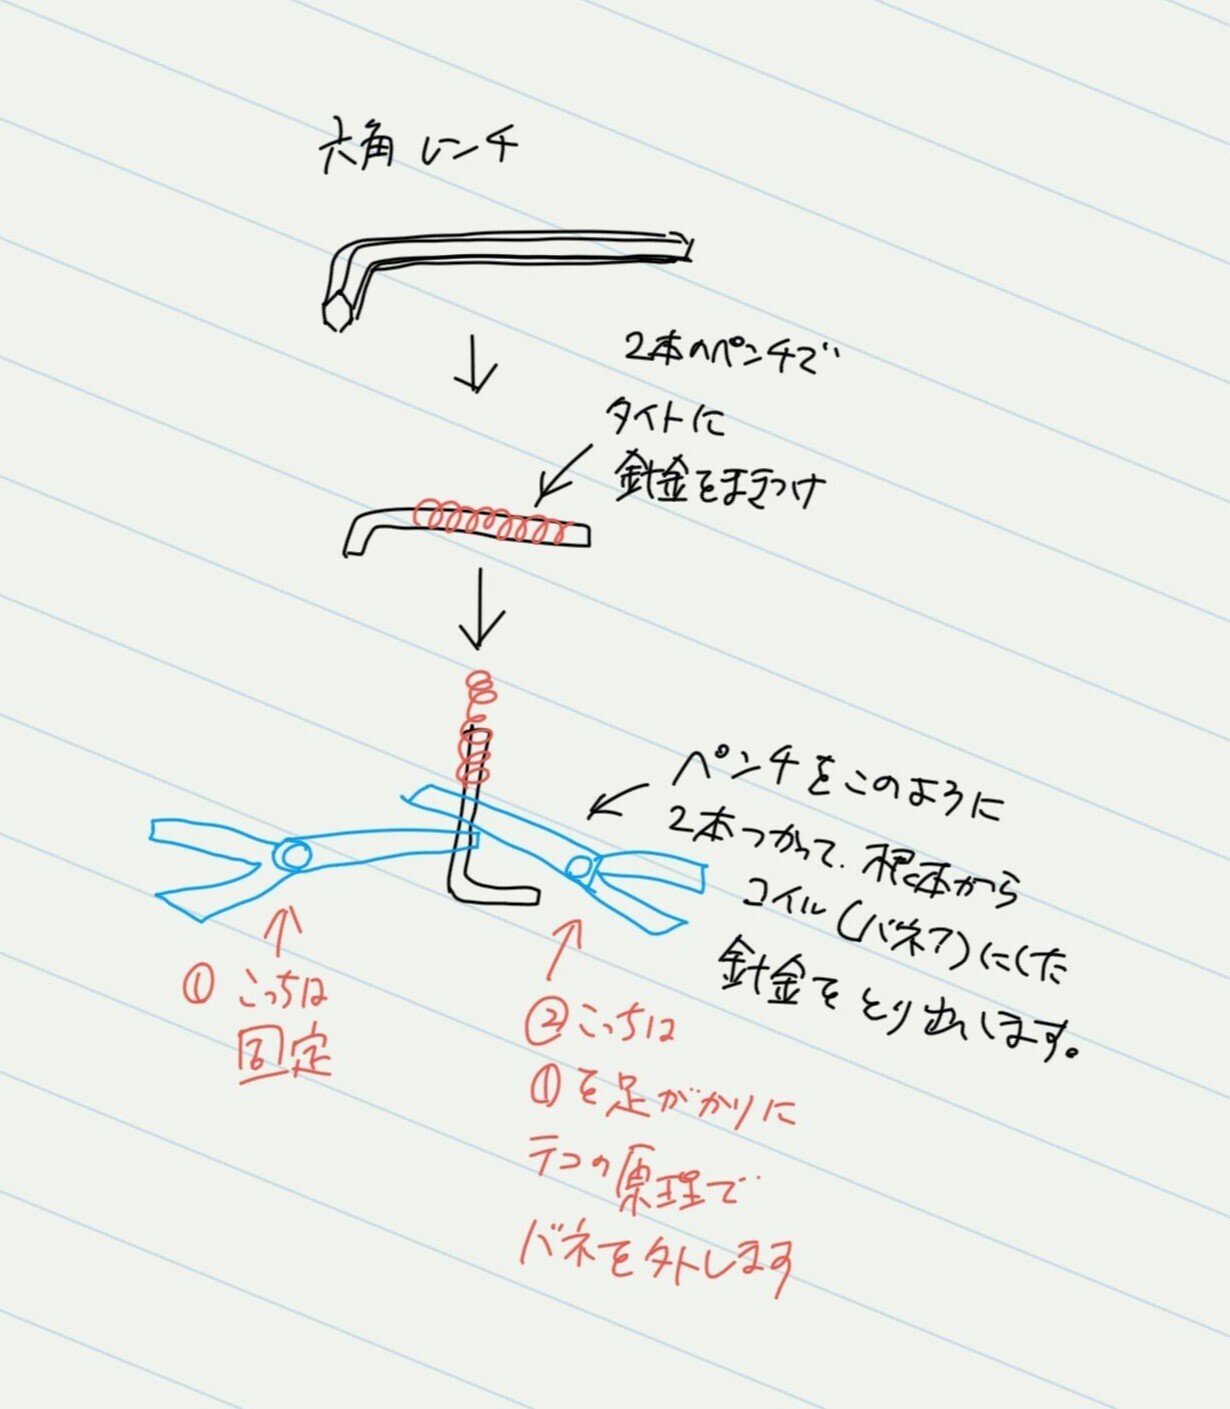 六角レンチ
2本のペンチで
タイトに
針金をまきつけ
ペンチをこのように
2本つかって、根本から
コイル(バネ?)にした
針金をとり出します。
① こっちは
固定
②こっちは
①を足がかりに
テコの原理で
バネを外します